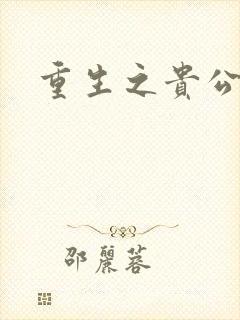 重生之貴公
邵麗蓉